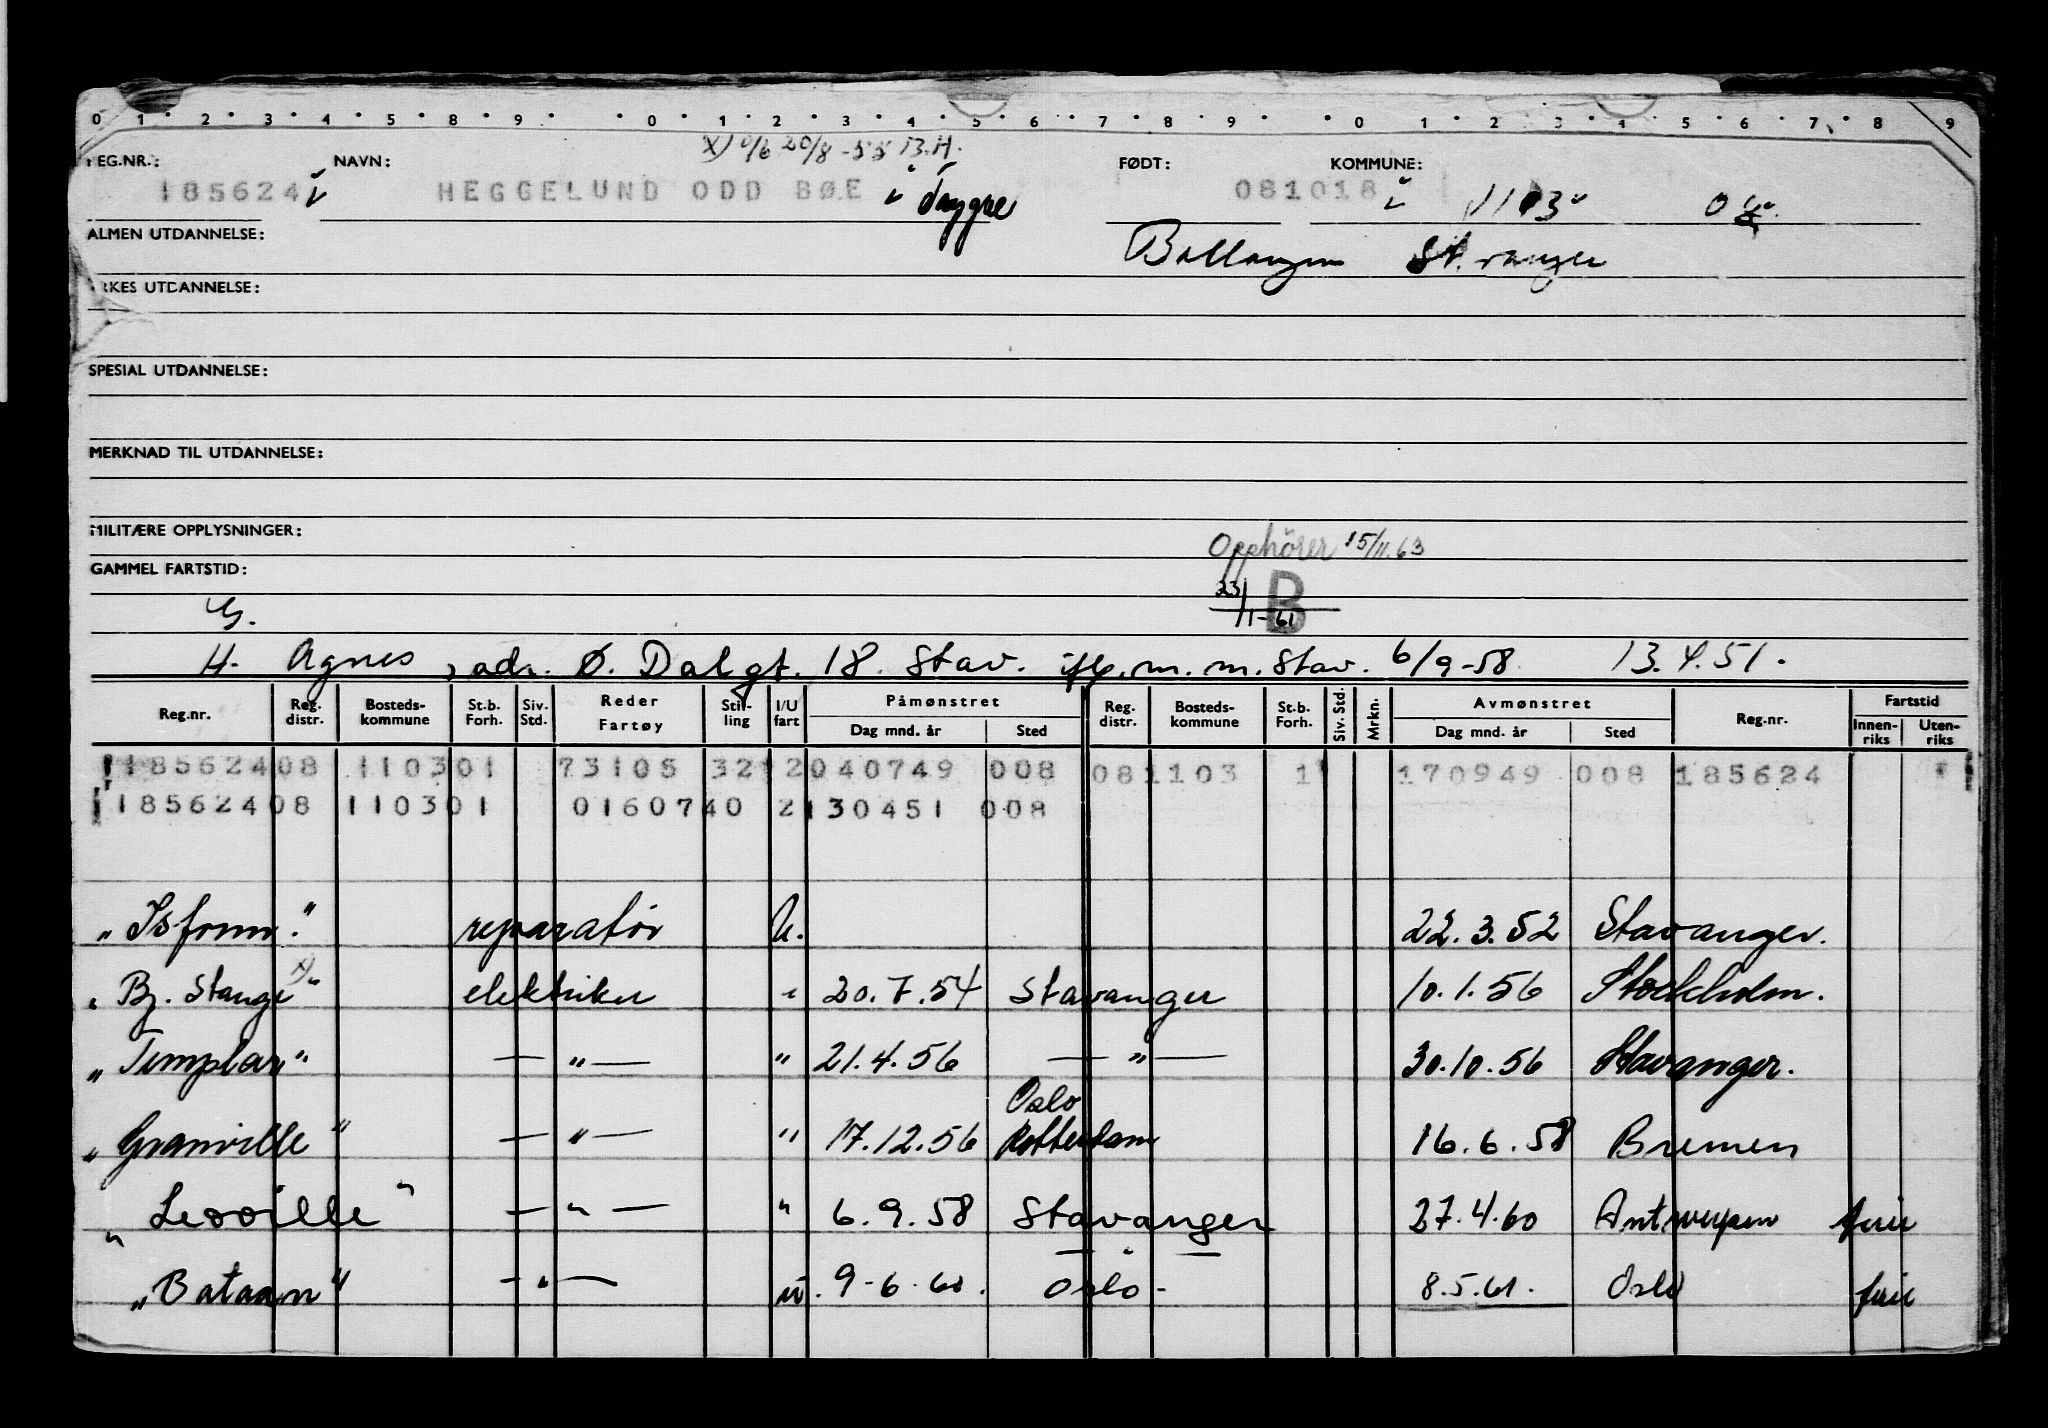 0 1 2 3 4 5 8 9 0 1 2 3 4 5 6 7 8 9 0 1 2 3 4 5 6 7 8 9
X) 0/6 20/8 -55 B.H.
REG.NR.: NAVN: FØDT: KOMMUNE:
185624 HEGGELUND ODD BØE Trygve 081018 1103
ALMEN UTDANNELSE: Ballangen St.vanger
YRKES UTDANNELSE:
SPESIAL UTDANNELSE:
MERKNAD TIL UTDANNELSE:
MILITÆRE OPPLYSNINGER:
Opphörer 15/11.63
GAMMEL FARTSTID:
23/1-61 B
G.
H. Agnes, adr. Ø. Dalgt. 18. Stav. m. m. Stav. 6/9-58 13.4.51.
Reg.nr. Reg. distr. Bosteds-kommune St.b. Forh. Siv. Std. Reder Fartøy Stil-ling I/U fart Påmønstret Dag mnd. år Sted Reg. distr. Bosteds-kommune St.b. Forh. Siv. Std. Mrkn. Avmønstret Dag mnd. år Sted Reg.nr. Fartstid Innen-riks Uten-riks
185624 08 110301 73105 32 2 040749 008 08 1103 1 170949 008 185624
185624 08 110301 0160740 2 130451 008
"Isfonn." reparatør U. 22.3.52 Stavanger.
"Bj. Stange" x) elektriker " 20.7.54 Stavanger 10.1.56 Stockholm.
"Templar" — " — " 21.4.56 — " — 30.10.56 Stavanger.
Oslo
"Granville" — " — " 17.12.56 Rotterdam 16.6.58 Bremen
"Leoville" — " — " 6.9.58 Stavanger 27.4.60 Antwerpen ferie
— " —
"Bataan" — " — u. 9-6-60. Oslo - 8.5.61. Oslo ferie